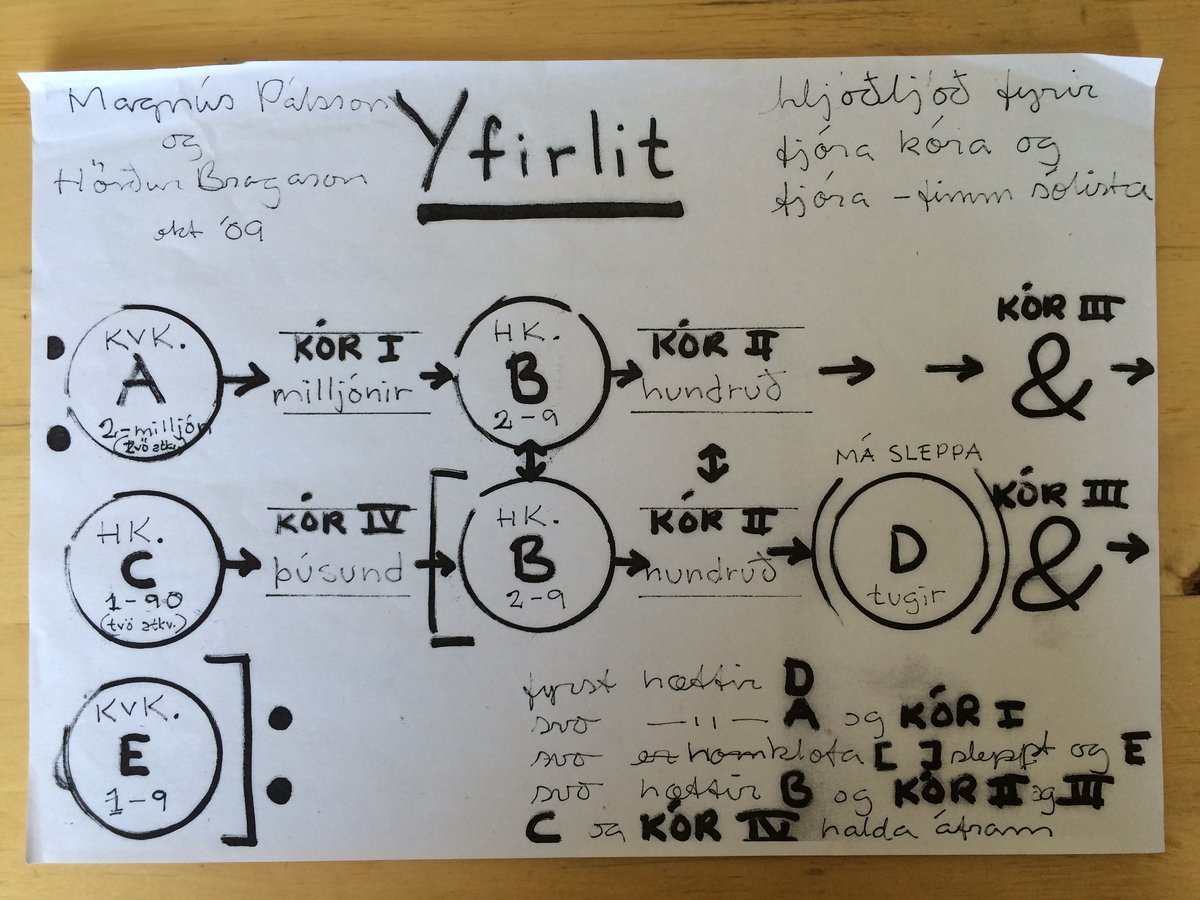 Magnús Pálsson
og
Hörður Bragason
okt '09
Yfirlit
hljóðljóð fyrir
fjóra kóra og
fjóra - fimm sólista
KVK.
A
2-milljón
(tvö atkv.)
KÓR I
milljónir
HK.
B
2-9
KÓR II
hundruð
KÓR III
&
HK.
C
1-90
(tvö atkv.)
KÓR IV
þúsund
[
HK.
B
2-9
KÓR II
hundruð
MÁ SLEPPA
(
D
tugir
)
KÓR III
&
KVK.
E
1-9
]
fyrst hættir D
svo —〃— A og KÓR I
svo hornklofa [ ] sleppt og E
svo hættir B og KÓR II og III
C og KÓR IV halda áfram